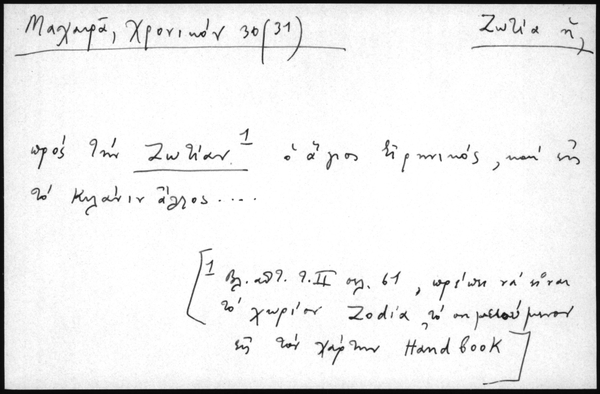 Μαχαιρᾶ, Χρονικόν 30(31) Ζωτία ἡ,
πρός τήν Ζωτίαν.¹ ὁ ἅγιος Εἰρηνικός, καί εἰς
τό Κυλάνιν ἄλλος....
[1 Βλ. αὐτ. τ. II σελ. 61, πρέπει νά εἶναι
τό χωρίον Zodia, τό σημειούμενον
εἰς τόν χάρτην Handbook]